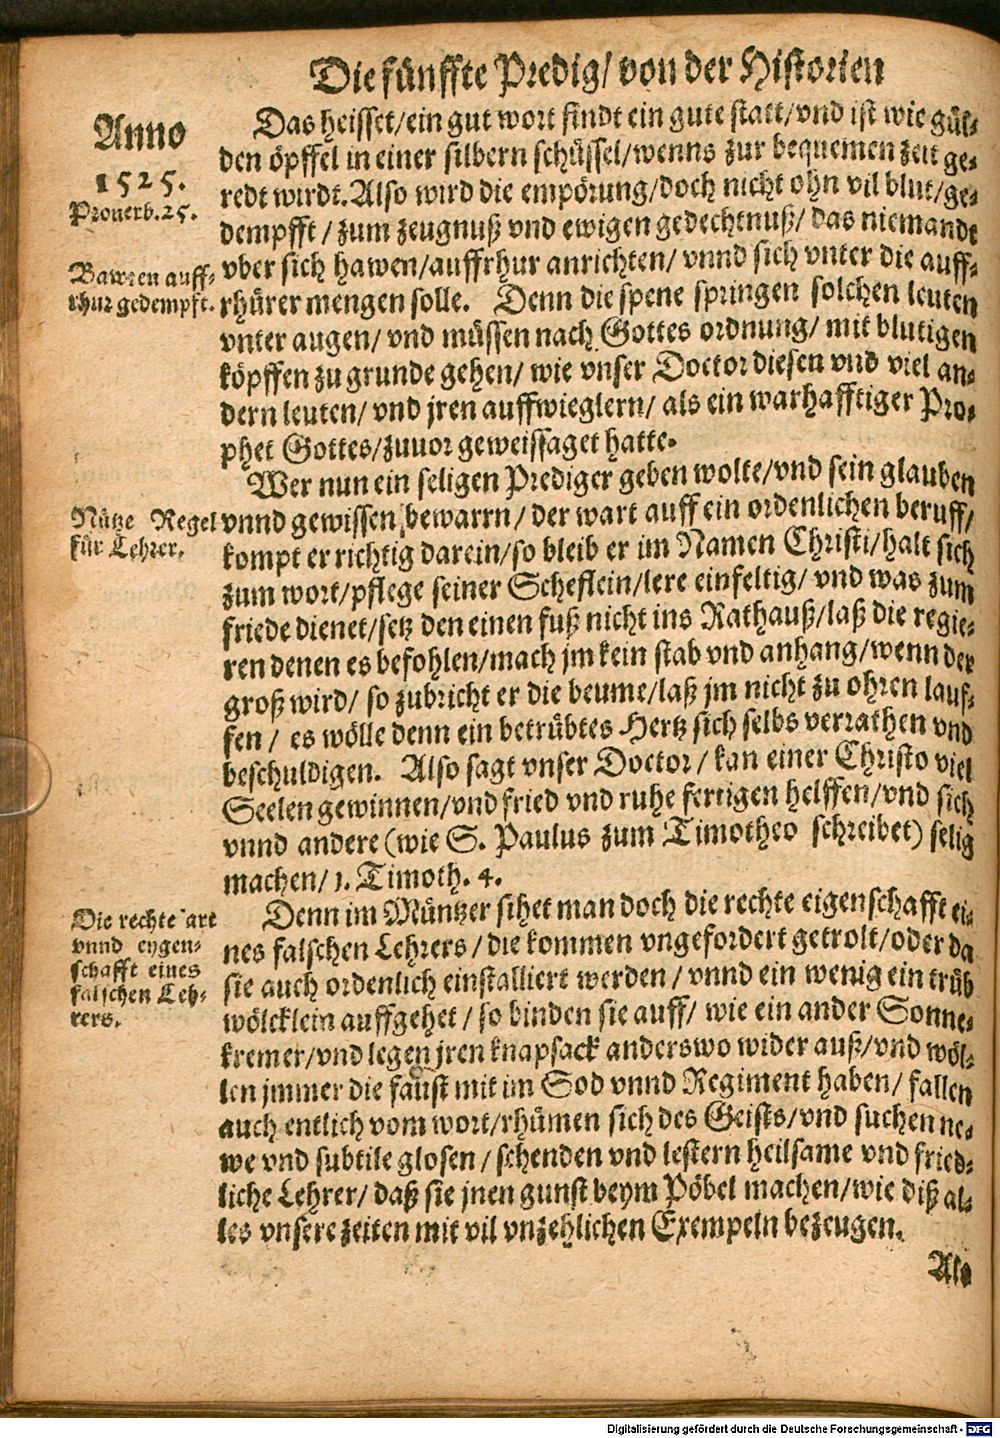 Die fünffte Predig/ von der Historien
Anno
1525.
Prouerb.25.
Das heisset/ein gut wort findt ein gute statt/vnd ist wie gül-
den öpffel in einer silbern schüssel/wenns zur bequemen zeit ge-
redt wirdt. Also wird die empörung/doch nicht ohn vil blut/ge-
dempfft / zum zeugnuß vnd ewigen gedechtnuß/ das niemandt
Bawren auff-
rhur gedempft.
vber sich hawen/auffrhur anrichten/ vnnd sich vnter die auff-
rhürer mengen solle. Denn die spene springen solchen leuten
vnter augen/ vnd müssen nach Gottes ordnung/ mit blutigen
köpffen zu grunde gehen/ wie vnser Doctor diesen vnd viel an-
dern leuten/ vnd jren auffwieglern/ als ein warhafftiger Pro-
phet Gottes/zuuor geweissaget hatte.
Wer nun ein seligen Prediger geben wolte/vnd sein glauben
Nütze Regel
für Lehrer.
vnnd gewissen bewarrn/ der wart auff ein ordenlichen beruff/
kompt er richtig darein/so bleib er im Namen Christi/halt sich
zum wort/pflege seiner Scheflein/lere einfeltig/ vnd was zum
friede dienet/setz den einen fuß nicht ins Rathauß/laß die regie-
ren denen es befohlen/mach jm kein stab vnd anhang/wenn der
groß wird/ so zubricht er die beume/laß jm nicht zu ohren lauf-
fen / es wölle denn ein betrübtes Hertz sich selbs verrathen vnd
beschuldigen. Also sagt vnser Doctor/ kan einer Christo viel
Seelen gewinnen/vnd fried vnd ruhe fertigen helffen/vnd sich
vnnd andere (wie S. Paulus zum Timotheo schreibet) selig
machen/ 1. Timoth. 4.
Die rechte art
vnnd eygen-
schafft eines
falschen Leh-
rers.
Denn im Müntzer sihet man doch die rechte eigenschafft ei-
nes falschen Lehrers / die kommen vngefordert getrolt/oder da
sie auch ordenlich einstalliert werden / vnnd ein wenig ein trüb
wölcklein auffgehet / so binden sie auff/ wie ein ander Sonne-
kremer/vnd legen jren knapsack anderswo wider auß/vnd wöl-
len jmmer die faust mit im Sod vnnd Regiment haben/ fallen
auch entlich vom wort/rhümen sich des Geists/vnd suchen ne-
we vnd subtile glosen / schenden vnd lestern heilsame vnd fried-
liche Lehrer/ daß sie jnen gunst beym Pöbel machen/wie diß al-
les vnsere zeiten mit vil vnzehlichen Exempeln bezeugen.
Als
Digitalisierung gefördert durch die Deutsche Forschungsgemeinschaft - DFG